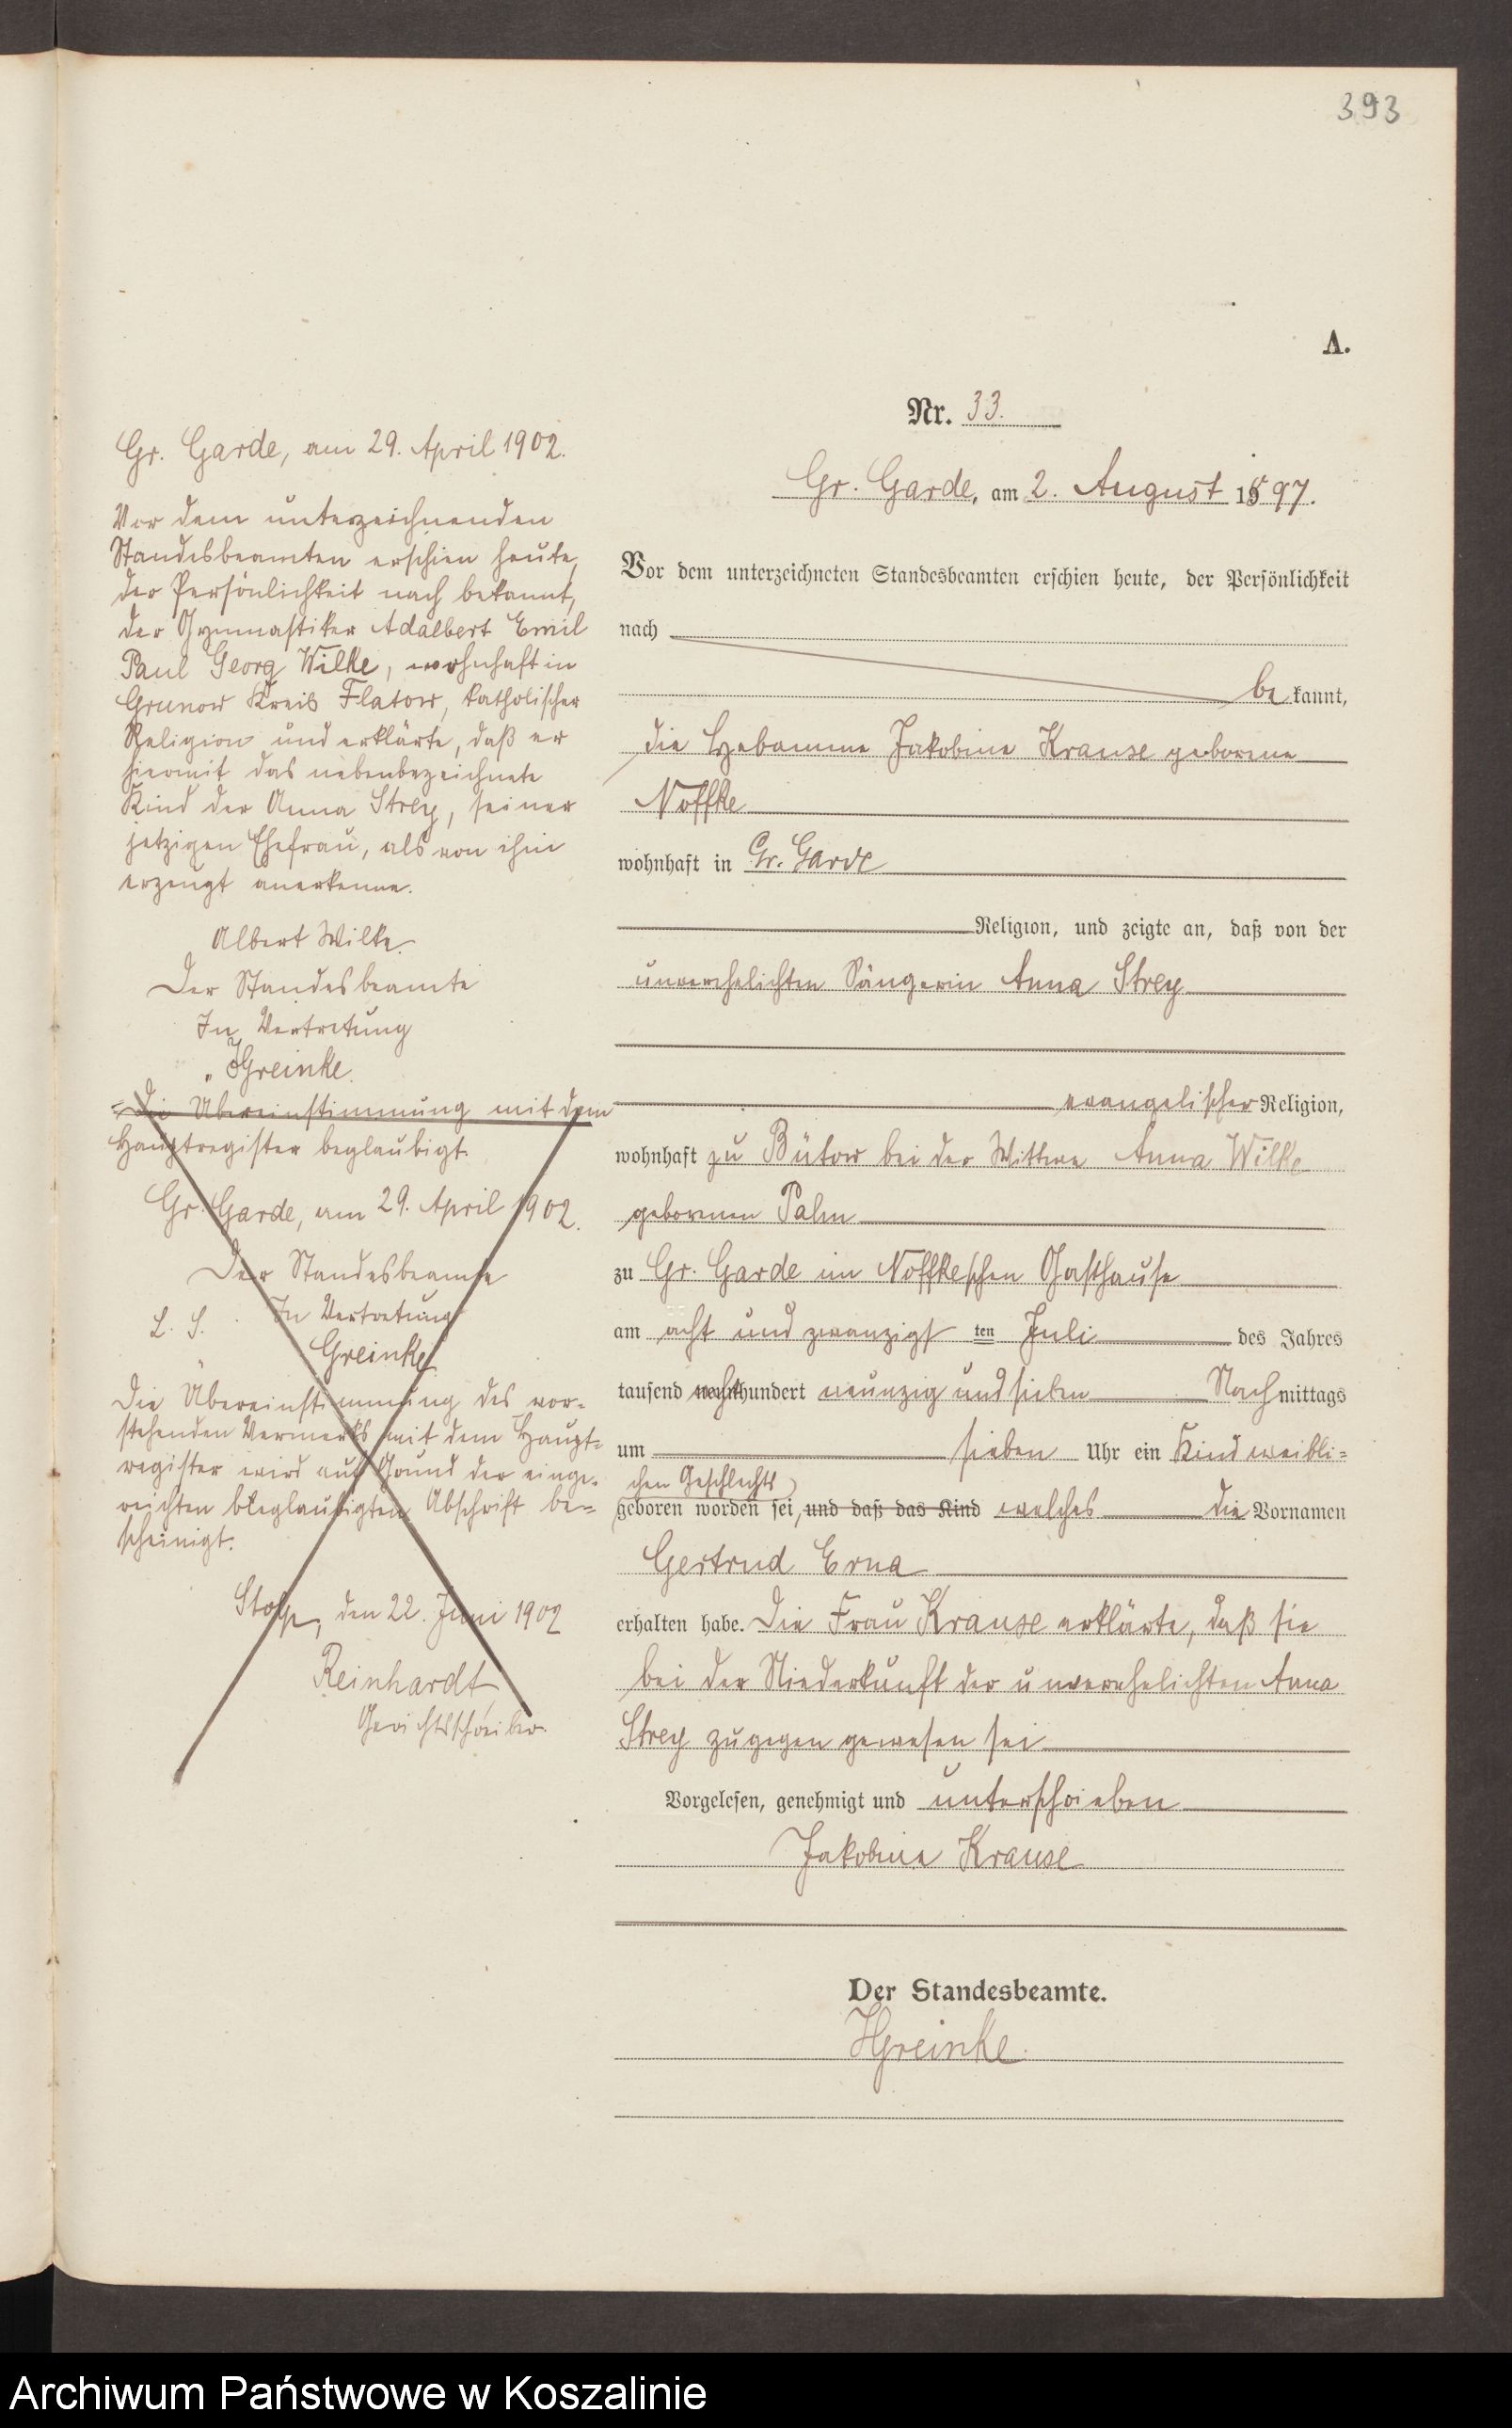 393
A.
Nr. 33.
Gr. Garde, am 2. August 1897.
Vor dem unterzeichneten Standesbeamten erschien heute, der Persönlichkeit
nach
be kannt,
die Hebamme Jakobine Krause geborene
Noffke
wohnhaft in Gr. Garde
Religion, und zeigte an, daß von der
unverehelichten Sängerin Anna Strey
evangelischer Religion,
wohnhaft zu Bütow bei der Wittwe Anna Wilke
geborenen Palm
zu Gr. Garde im Noffkeschen Gasthause
am acht und zwanzigst ten Juli des Jahres
tausend achthundert neunzig und sieben Nachmittags
um sieben Uhr ein Kind weibli=
chen Geschlechts
geboren worden sei, und daß das Kind welches die Vornamen
Gertrud Erna
erhalten habe. Die Frau Krause erklärte, daß sie
bei der Niederkunft der unverehelichten Anna
Strey zugegen gewesen sei
Vorgelesen, genehmigt und unterschrieben
Jakobine Krause
Der Standesbeamte.
HGreinke.
Gr. Garde, am 29. April 1902.
Vor dem unterzeichnenden
Standesbeamten erschien heute,
der Persönlichkeit nach bekannt,
der Gymnastiker Adalbert Emil
Paul Georg Wilke, wohnhaft in
Grunow Kreis Flatow, katholischer
Religion und erklärte, daß er
hiermit das nebenbezeichnete
Kind der Anna Strey, seiner
jetzigen Ehefrau, als von ihm
erzeugt anerkenne.
Albert Wilke.
Der Standesbeamte
In Vertretung
HGreinke.
Die Übereinstimmung mit dem
Hauptregister beglaubigt.
Gr. Garde, am 29. April 1902.
Der Standesbeamte
L. S. In Vertretung
Greinke
Die Übereinstimmung des vor-
stehenden Vermerks mit dem Haupt=
register wird auf Grund der einge-
reichten beglaubigten Abschrift be=
scheinigt.
Stolp, den 22. Juni 1902
Reinhardt
Gerichtsschreiber.
Archiwum Państwowe w Koszalinie